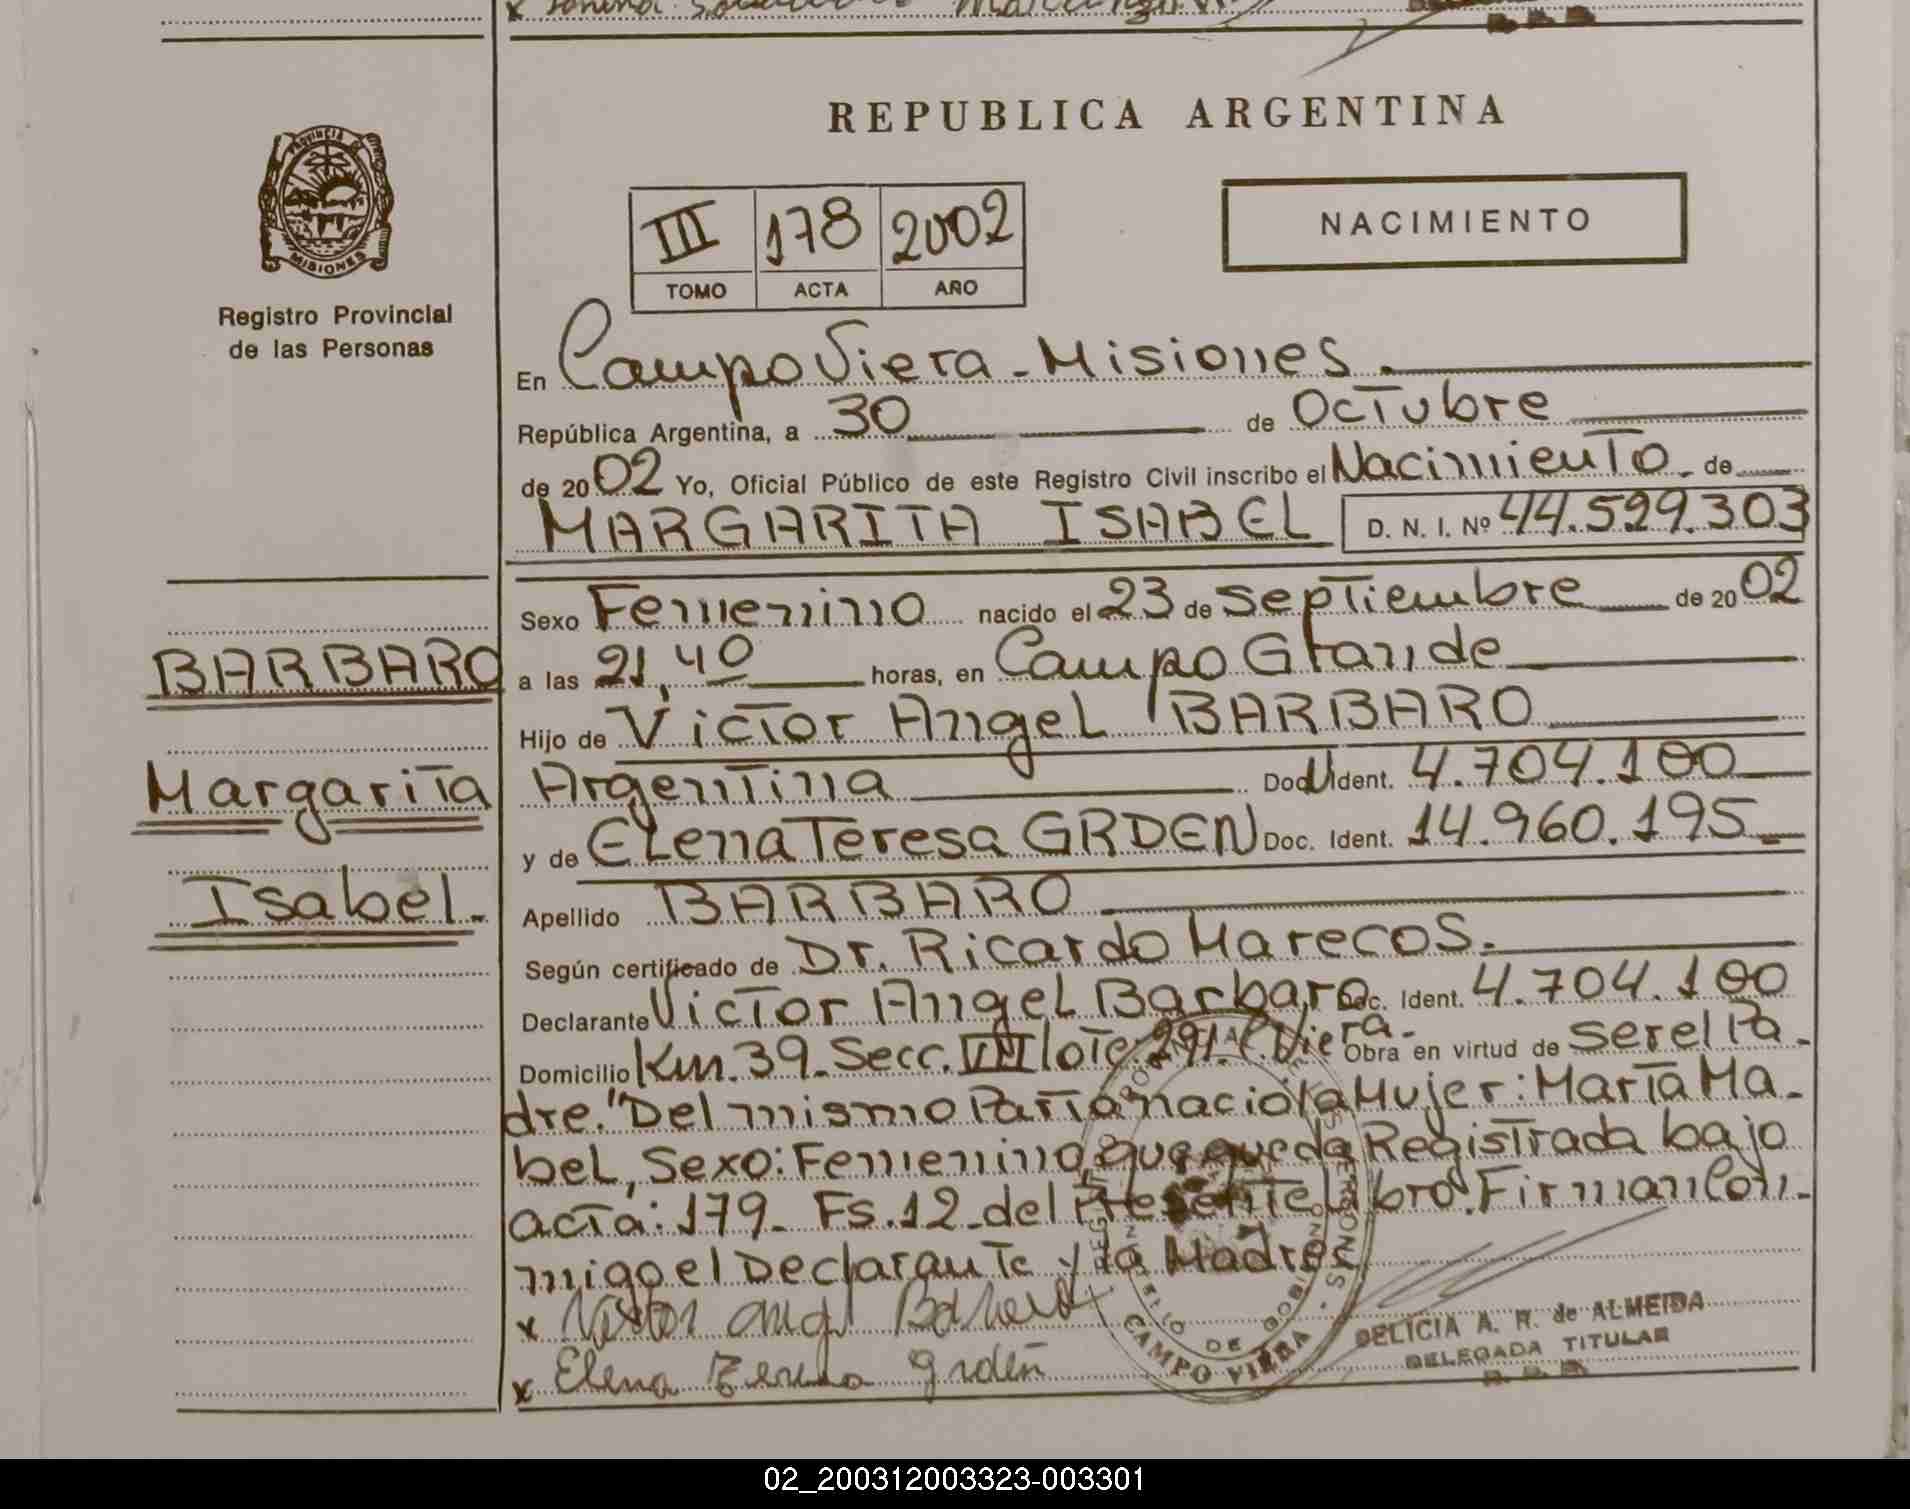 REPUBLICA ARGENTINA
PROVINCIA DE
MISIONES
Registro Provincial
de las Personas
III 178 2002
TOMO ACTA AÑO
NACIMIENTO
En Campo Viera - Misiones.
República Argentina, a 30 de Octubre
de 2002 Yo, Oficial Público de este Registro Civil inscribo el Nacimiento de
MARGARITA ISABEL D. N. I. Nº 44.599.303
Sexo Femenino nacido el 23 de Septiembre de 2002
BARBARO
a las 21,40 horas, en Campo Grande
Hijo de Victor Angel BARBARO
Margarita
Argentina Doc. Ident. 4.704.100
y de Elena Teresa GRDEN Doc. Ident. 14.960.195
Isabel.
Apellido BARBARO
Según certificado de Dr. Ricardo Marecos.
Declarante Victor Angel Barbaro Doc. Ident. 4.704.100
Domicilio Km. 39 - Secc. VIII lote 291 - C. Viera - Obra en virtud de ser el Pa-
dre. "Del mismo Parto nació la Mujer: Marta Ma-
bel, Sexo: Femenino, que queda Registrada bajo
acta: 179 - Fs. 12 - del Presente Libro". Firman Con-
migo el Declarante y la Madre
x Victor Angel Barbaro
DELICIA A. R. de ALMEIDA
DELEGADA TITULAR
x Elena Teresa Grden
CAMPO VIERA
02_200312003323-003301